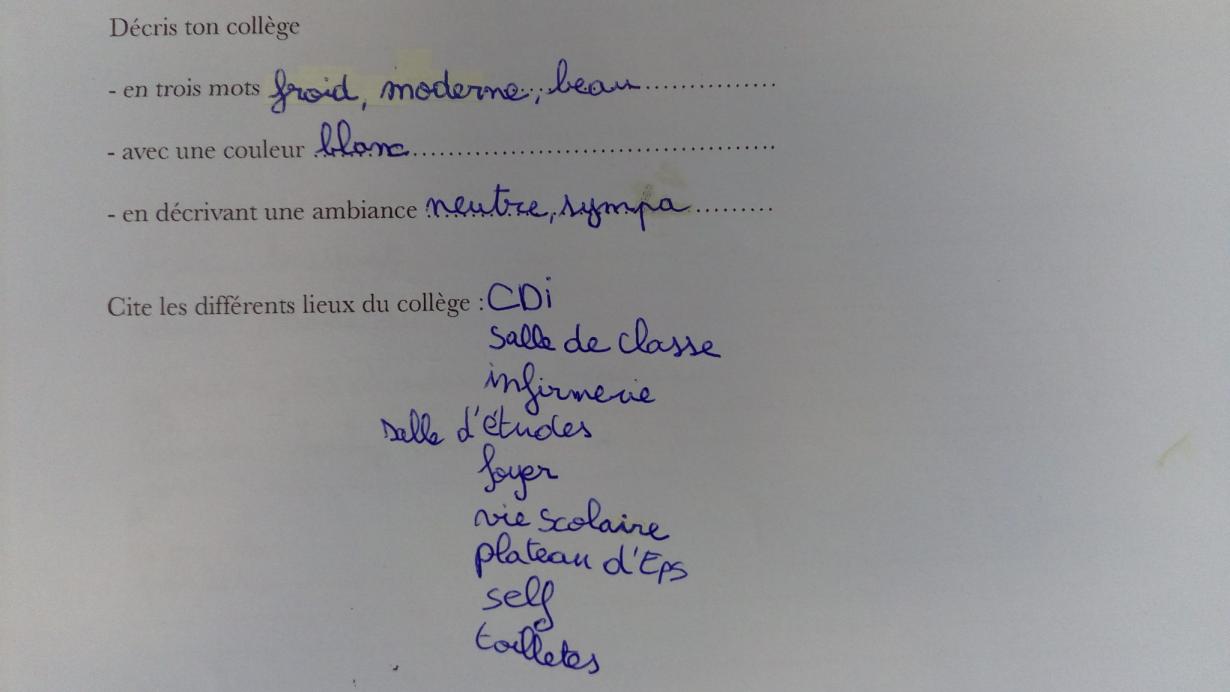 Décris ton collège
- en trois mots froid, moderne, beau..............
- avec une couleur blanc.......................................
- en décrivant une ambiance neutre, sympa.........
Cite les différents lieux du collège : CDi
salle de classe
infirmerie
salle d'études
foyer
vie scolaire
plateau d'Eps
self
toilletes